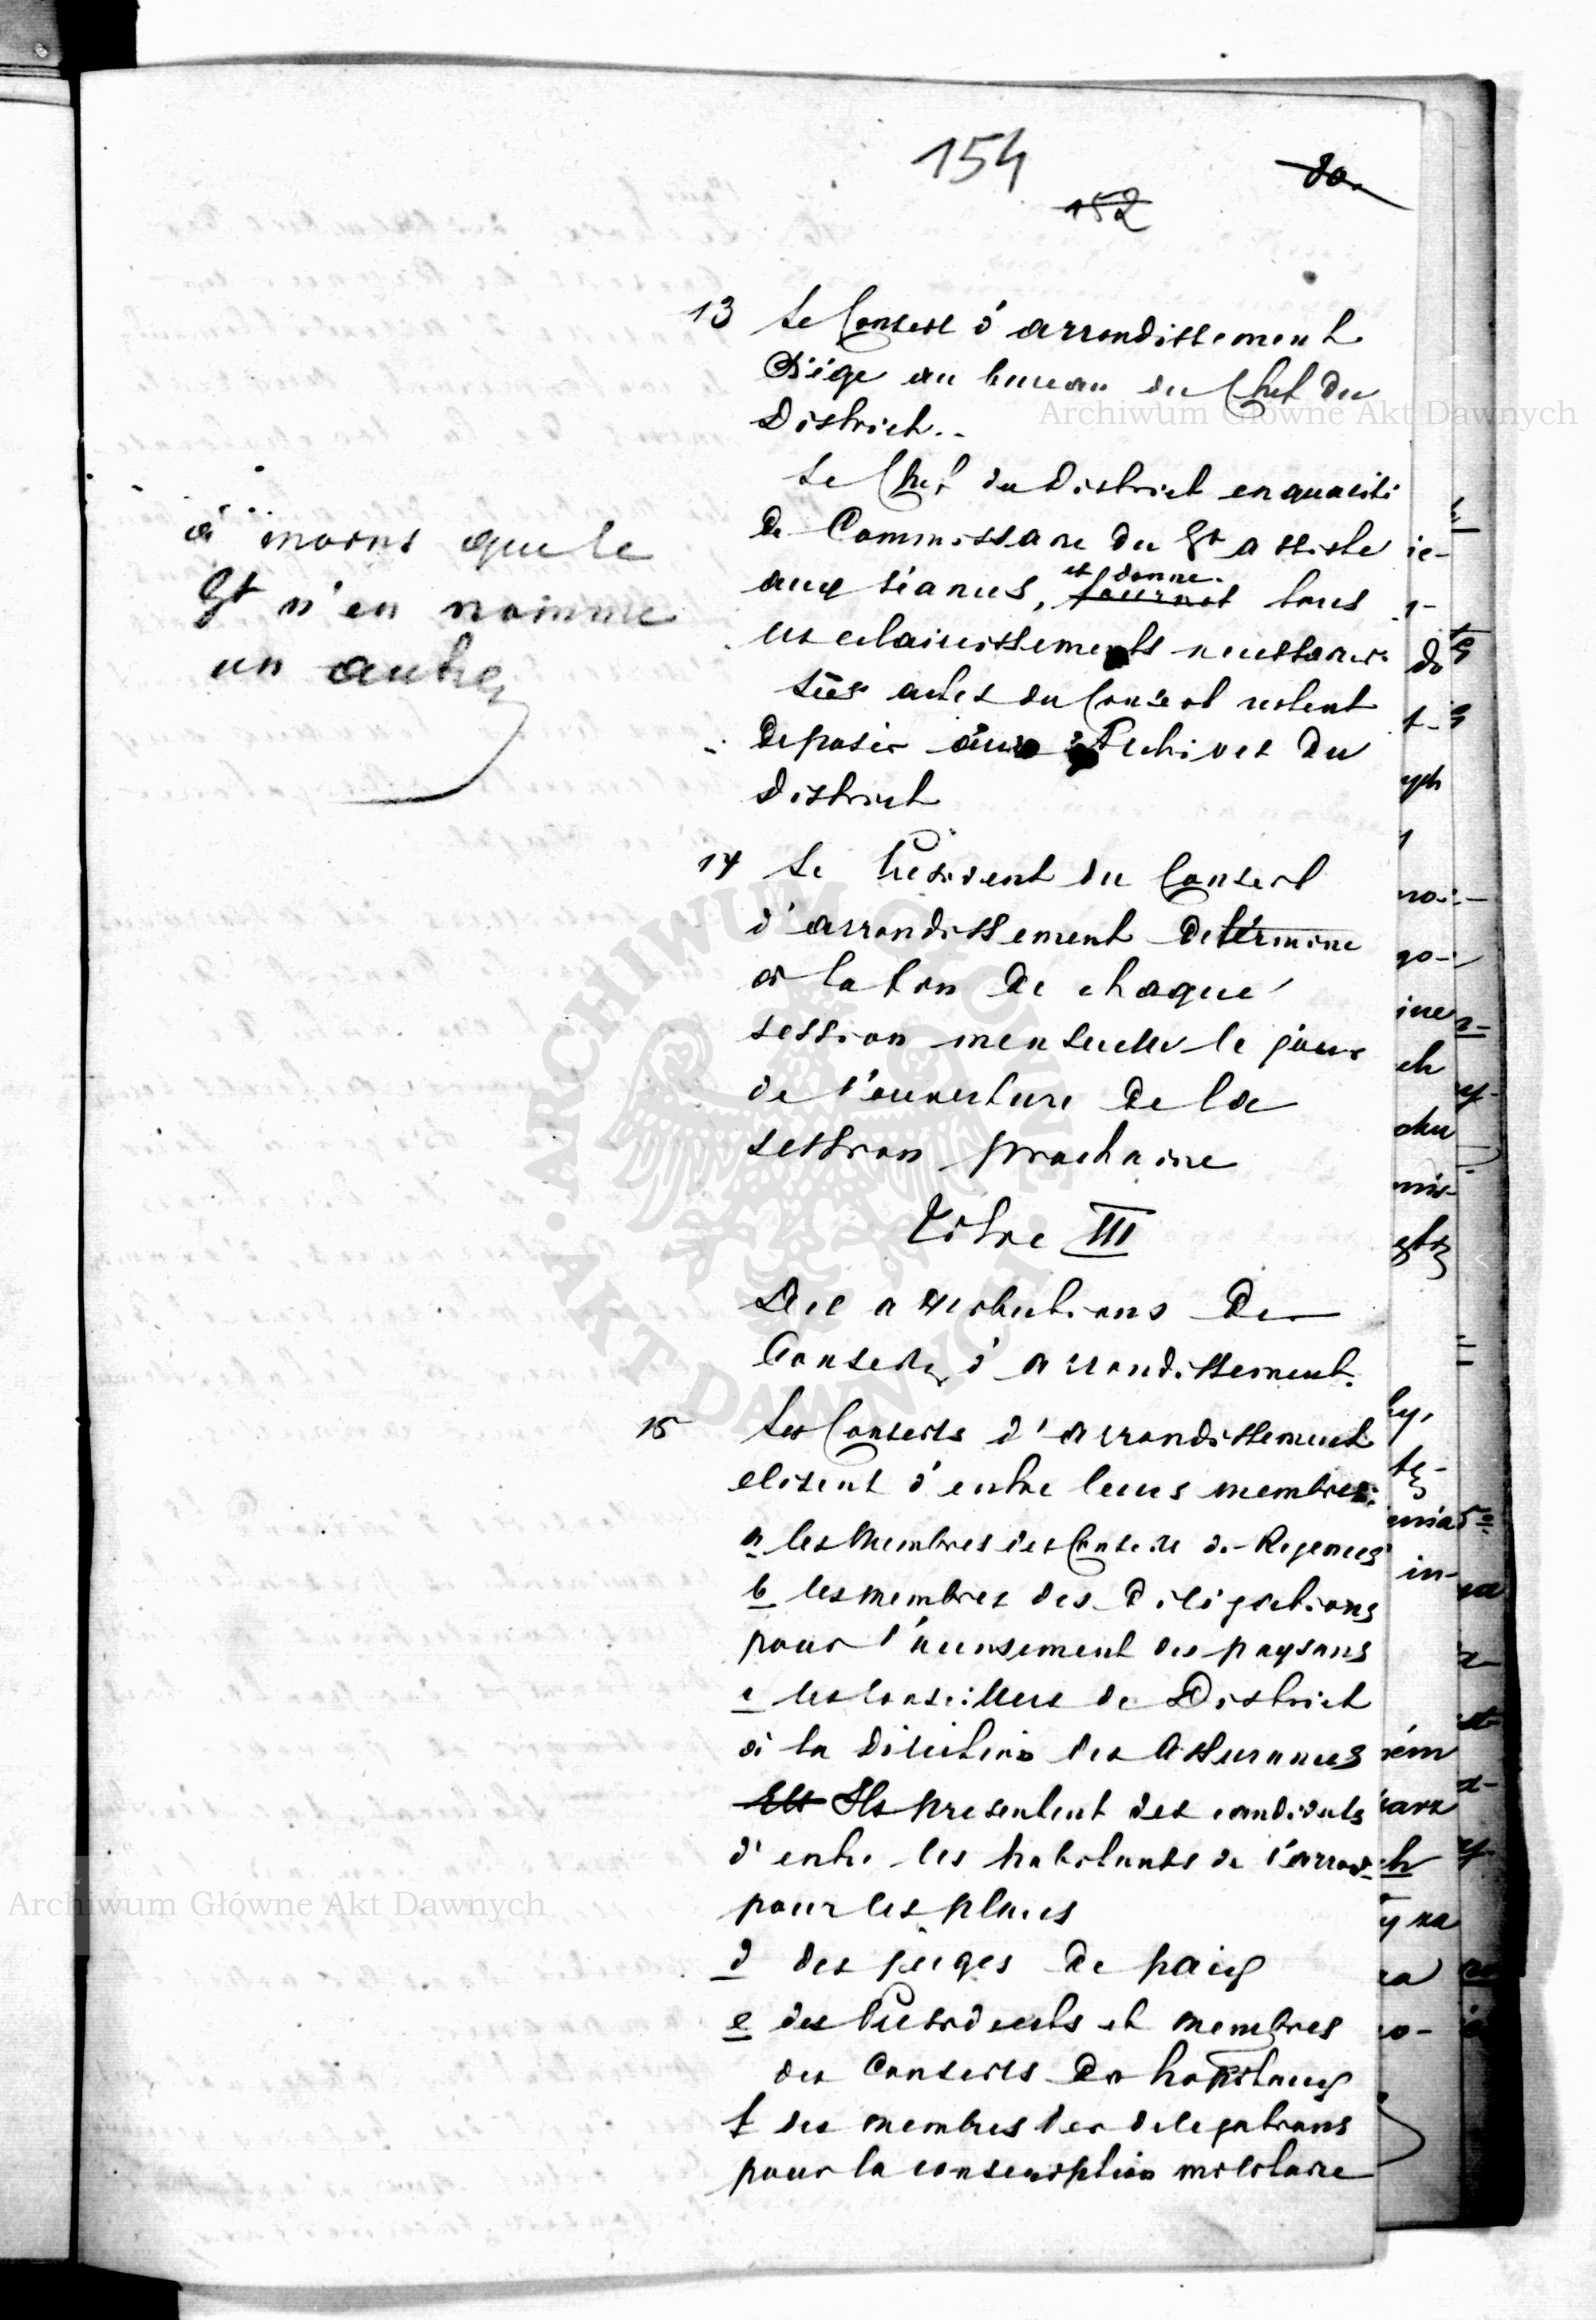 154
152
80.
13 Le Conseil d'arrondissement
Siége au bureau du Chef du
District.-
Le Chef du District en qualité
de Commissaire du Gt assiste
aux séances, et donne fournit tous
les eclaircissements necessaires
Les actes du Conseil restent
deposés aux Archives du
District
à moins que le
Gt n'en nomme
un autre
14 Le President du Conseil
d'arrondissement determine
à la fin de chaque
session mensuelle le jour
de l'ouverture de la
session prochaine
Titre III
Des attributions des
Conseils d'arrondissement.
15 Les Conseils d'arrondissement
elisent d'entre leurs membres:
a les Membres des Conseils de Regences
b les membres des Délégations
pour l'acensement des paysans
c les conseillers de District
à la direction des Assurances
Ils presentent des candidats
d'entre les habitants de l'arrond-
pour les places
d des juges de paix
e des Presidents et membres
des Conseils des hopitaux
f des membres des delegations
pour la conscription militaire
Archiwum Główne Akt Dawnych
Archiwum Główne Akt Dawnych
ARCHIWUM GŁÓWNE AKT DAWNYCH